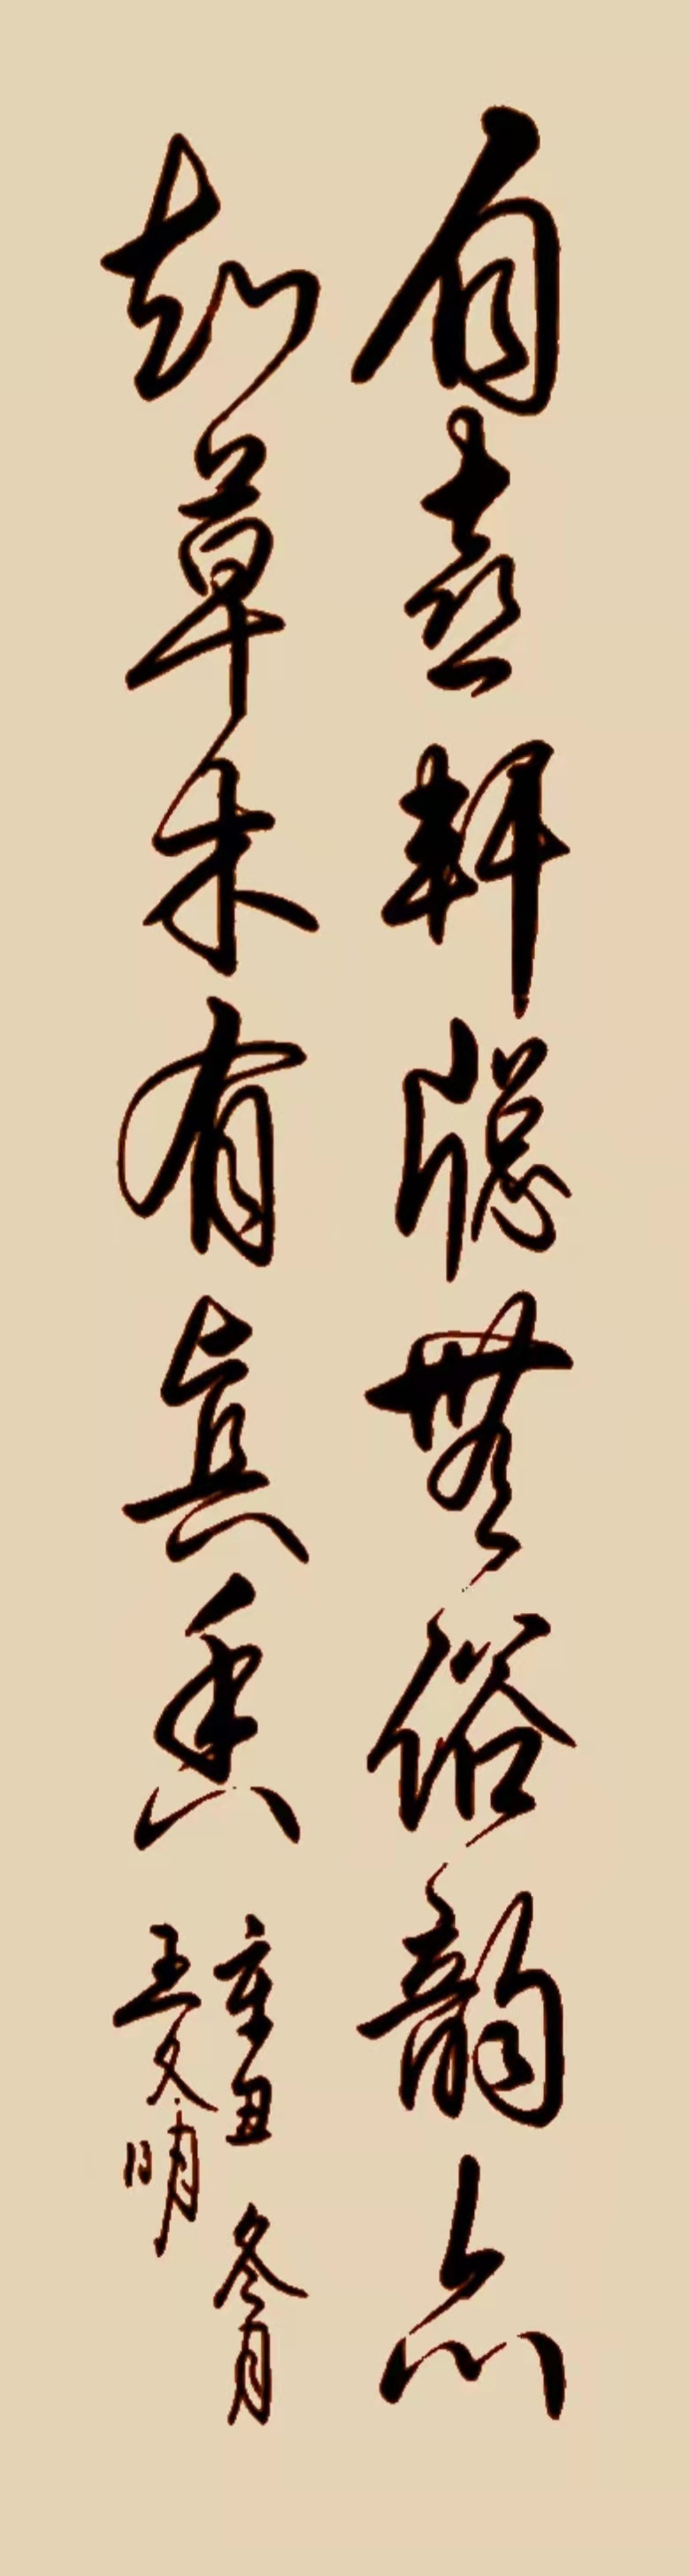 自喜軒窓無俗韻亦
知草木有真香
辛丑冬月
王文明